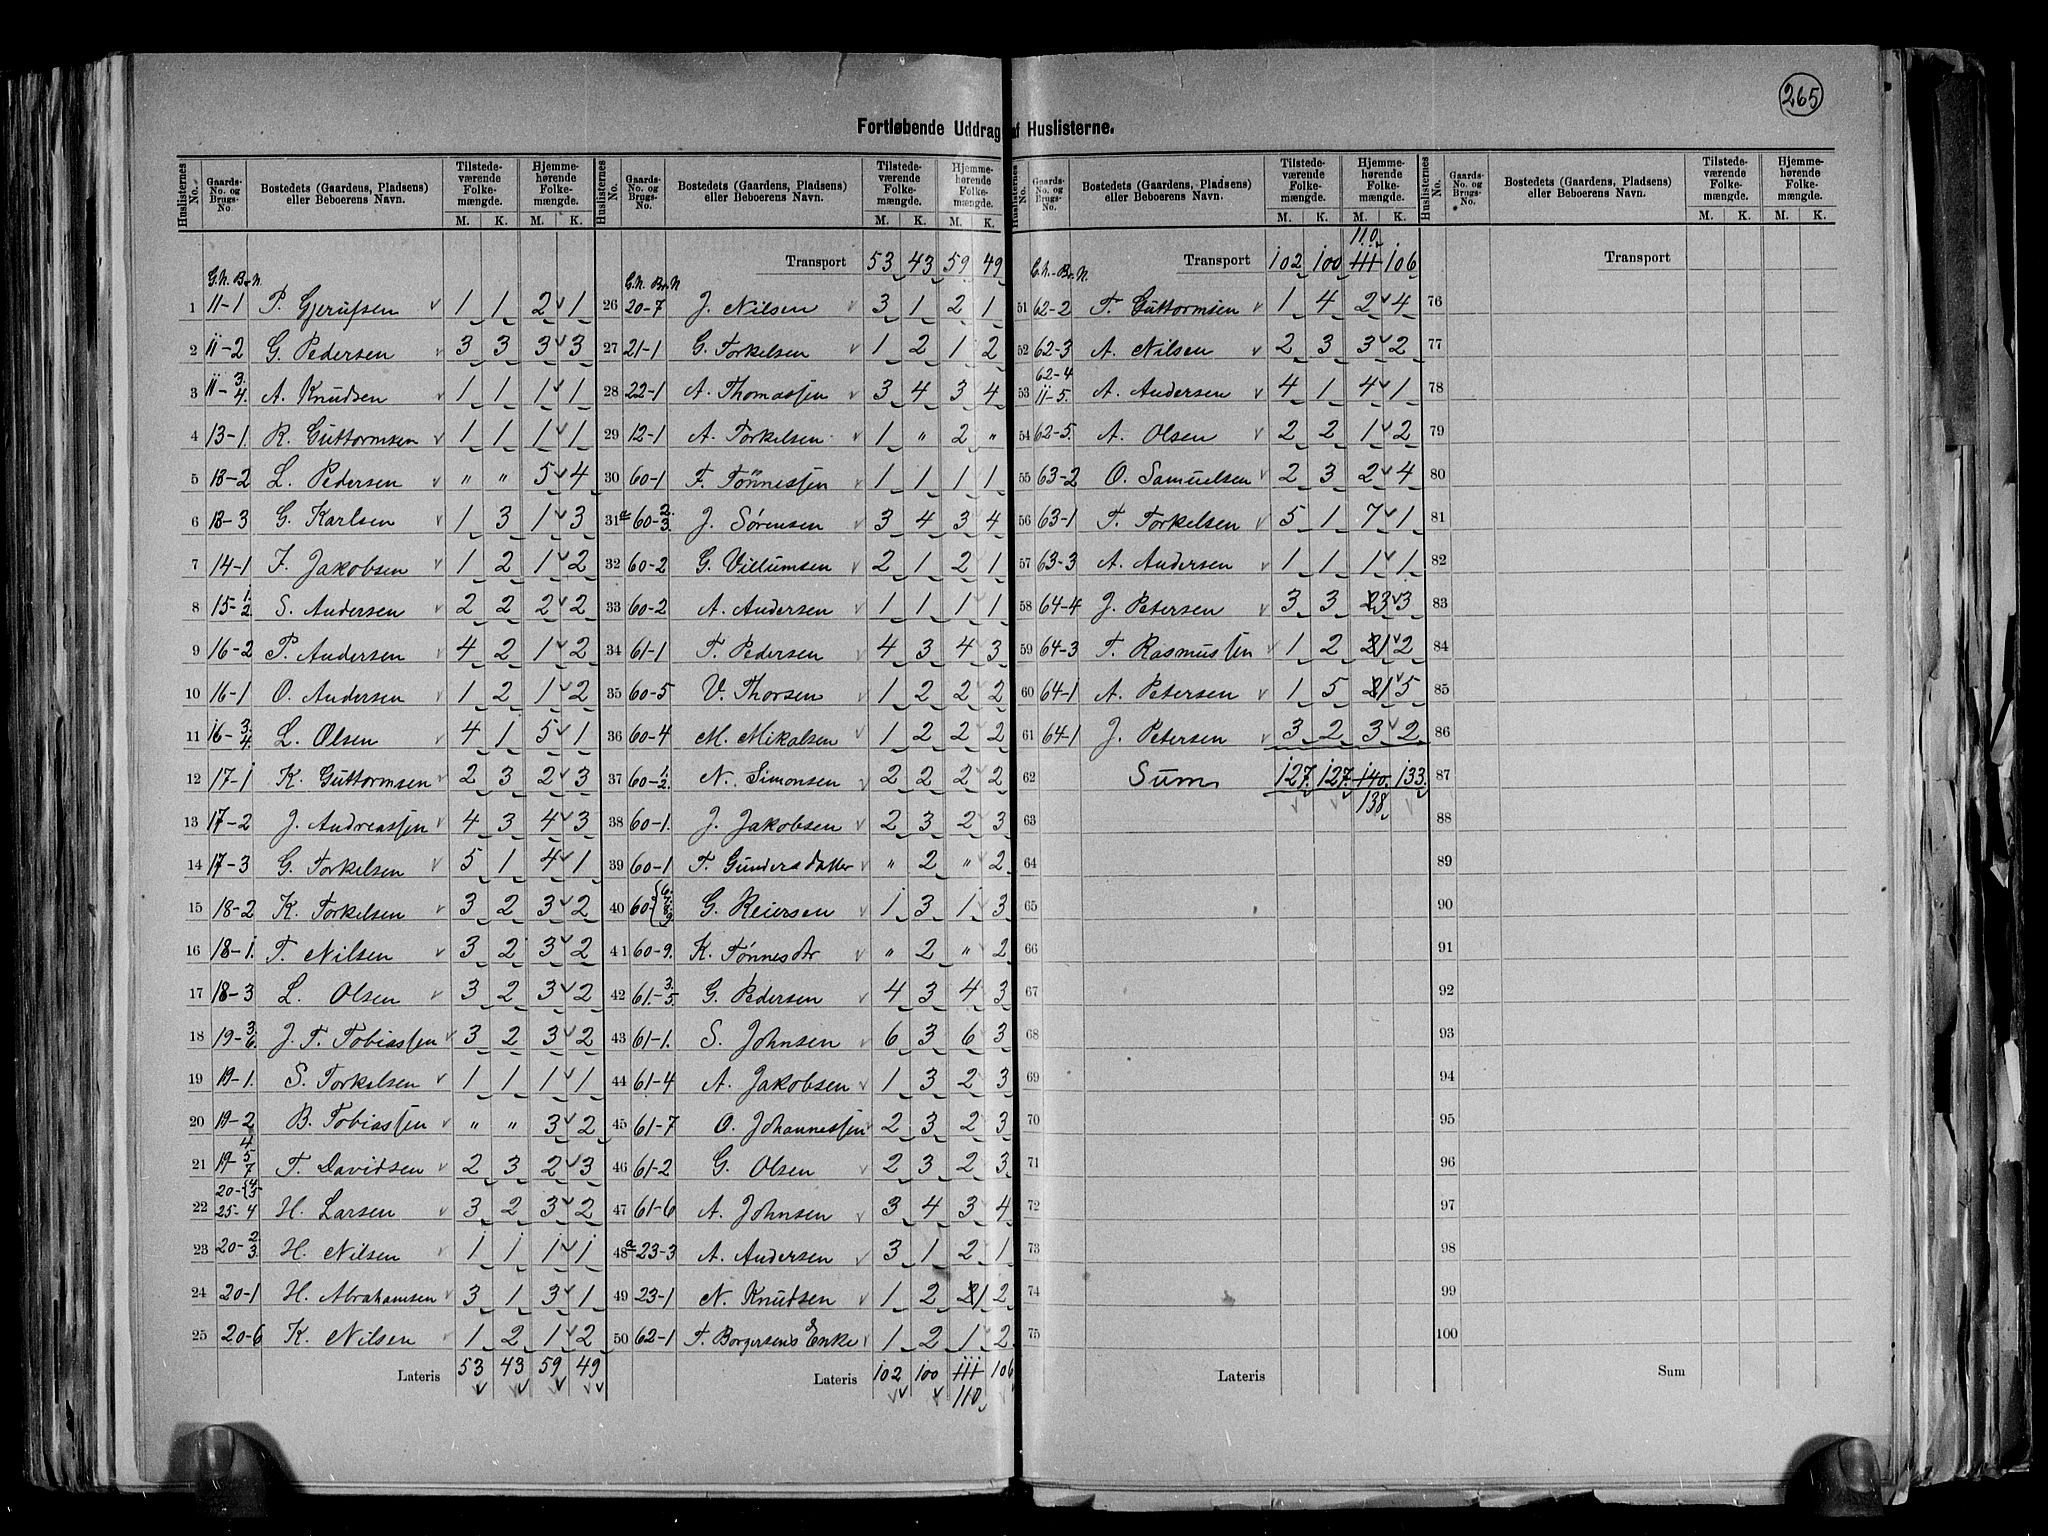 265
Fortløbende Uddrag af Huslisterne.
Huslisternes No. Gaards-No. og Brugs-No. Bostedets (Gaardens, Pladsens) eller Beboerens Navn. Tilstedeværende Folkemængde. M. K. Hjemmehørende Folkemængde. M. K.
G.N. Br.N.
1 11-1 P. Gjerufsen 1 1 2 1
2 11-2 G. Pedersen 3 3 3 3
3 11-3.4. A. Knudsen 1 1 1 1
4 13-1. R. Guttormsen 1 1 1 1
5 13-2 L. Pedersen " " 5 4
6 13-3 G. Karlsen 1 3 1 3
7 14-1 F. Jakobsen 1 2 1 2
8 15-1.2 S. Andersen 2 2 2 2
9 16-2 P. Andersen 4 2 1 2
10 16-1 O. Andersen 1 2 1 2
11 16-3.4. L. Olsen 4 1 5 1
12 17-1 K. Guttormsen 2 3 2 3
13 17-2 J. Andreassen 4 3 4 3
14 17-3 G. Torkelsen 5 1 4 1
15 18-2 K. Torkelsen 3 2 3 2
16 18-1. T. Nilsen 3 2 3 2
17 18-3 L. Olsen 3 2 3 2
18 19-3.6. J. T. Tobiassen 3 2 3 2
19 19-1. S. Torkelsen 1 1 1 1
20 19-2 B. Tobiassen " " 3 2
21 19-4 5 7 T. Davidsen 2 3 2 3
22 20-{4 5 25-4 H. Larsen 3 2 3 2
23 20-2.3. H. Nilsen 1 1 1 1
24 20-1 H. Abrahamsen 3 1 3 1
25 20-6 K. Nilsen 1 2 1 2
Lateris 53 43 59 49
Huslisternes No. Gaards-No. og Brugs-No. Bostedets (Gaardens, Pladsens) eller Beboerens Navn. Tilstedeværende Folkemængde. M. K. Hjemmehørende Folkemængde. M. K.
Transport 53 43 59 49
G.N. Br.N
26 20-7 J. Nilsen 3 1 2 1
27 21-1 G. Torkelsen 1 2 1 2
28 22-1 A. Thomassen 3 4 3 4
29 12-1 A. Torkelsen. 1 " 2 "
30 60-1 F. Tönnessen 1 1 1 1
31a 60-2.3. J. Sørensen 3 4 3 4
32 60-2 G. Villumsen 2 1 2 1
33 60-2 A. Andersen 1 1 1 1
34 61-1 T. Pedersen 4 3 4 3
35 60-5 V. Thorsen 1 2 2 2
36 60-4 M. Mikalsen 1 2 2 2
37 60-1.2. N. Simonsen 2 2 2 2
38 60-1. J. Jakobsen 2 3 2 3
39 60-1 T. Gundersdatter " 2 " 2
40 60-{6. 7. 8. 9 G. Reiersen 1 3 1 3
41 60-9. K. Tønnesdtr " 2 " 2
42 61-3.5. G. Pedersen 4 3 4 3
43 61-1. S. Johnsen 6 3 6 3
44 61-4 A. Jakobsen 1 3 2 3
45 61-7 O. Johannessen 2 3 2 3
46 61-2 G. Olsen 2 3 2 3
47 61-6 A. Johnsen 3 4 3 4
48a 23-3 A. Andersen 3 1 2 1
49 23-1 N. Knudsen 1 2 21 2
50 62-1 T. Borgersens Enke 1 2 1 2
Lateris 102 100 111 106
110
Huslisternes No. Gaards-No. og Brugs-No. Bostedets (Gaardens, Pladsens) eller Beboerens Navn. Tilstedeværende Folkemængde. M. K. Hjemmehørende Folkemængde. M. K.
110
Transport 102 100 111 106
G.N.-Br.N.
51 62-2 T. Guttormsen 1 4 2 4
52 62-3 A. Nilsen 2 3 3 2
53 62-4 11-5. A. Andersen 4 1 4 1
54 62-5. A. Olsen 2 2 1 2
55 63-2 O. Samuelsen 2 3 2 4
56 63-1 T. Torkelsen 5 1 7 1
57 63-3 A. Andersen 1 1 1 1
58 64-4 J. Petersen 3 3 23 3
59 64-3 T. Rasmussen 1 2 21 2
60 64-1 A. Petersen 1 5 21 5
61 64-1 J. Petersen 3 2 3 2
62 Sum 127. 127. 140. 133.
138
63
64
65
66
67
68
69
70
71
72
73
74
75
Lateris
Huslisternes No. Gaards-No. og Brugs-No. Bostedets (Gaardens, Pladsens) eller Beboerens Navn. Tilstedeværende Folkemængde. M. K. Hjemmehørende Folkemængde. M. K.
Transport
76
77
78
79
80
81
82
83
84
85
86
87
88
89
90
91
92
93
94
95
96
97
98
99
100
Sum